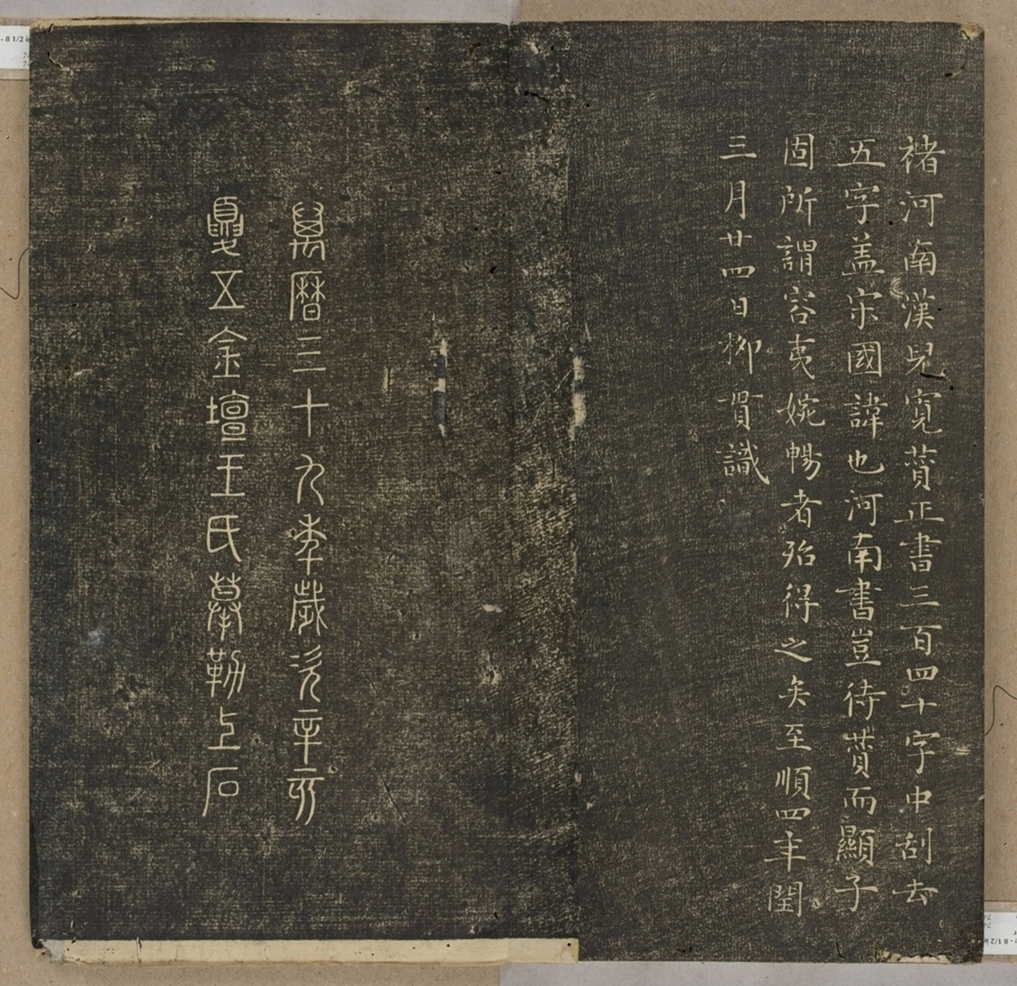 褚河南漢兒寬贊正書三百四十字中刮去
五字盖宋國諱也河南書豈待贊而顯子
固所謂容夷婉暢者殆得之矣至順四年閏
三月廿四日柳貫識
萬曆三十九季歲次辛亥
夏五金壇王氏摹勒上石